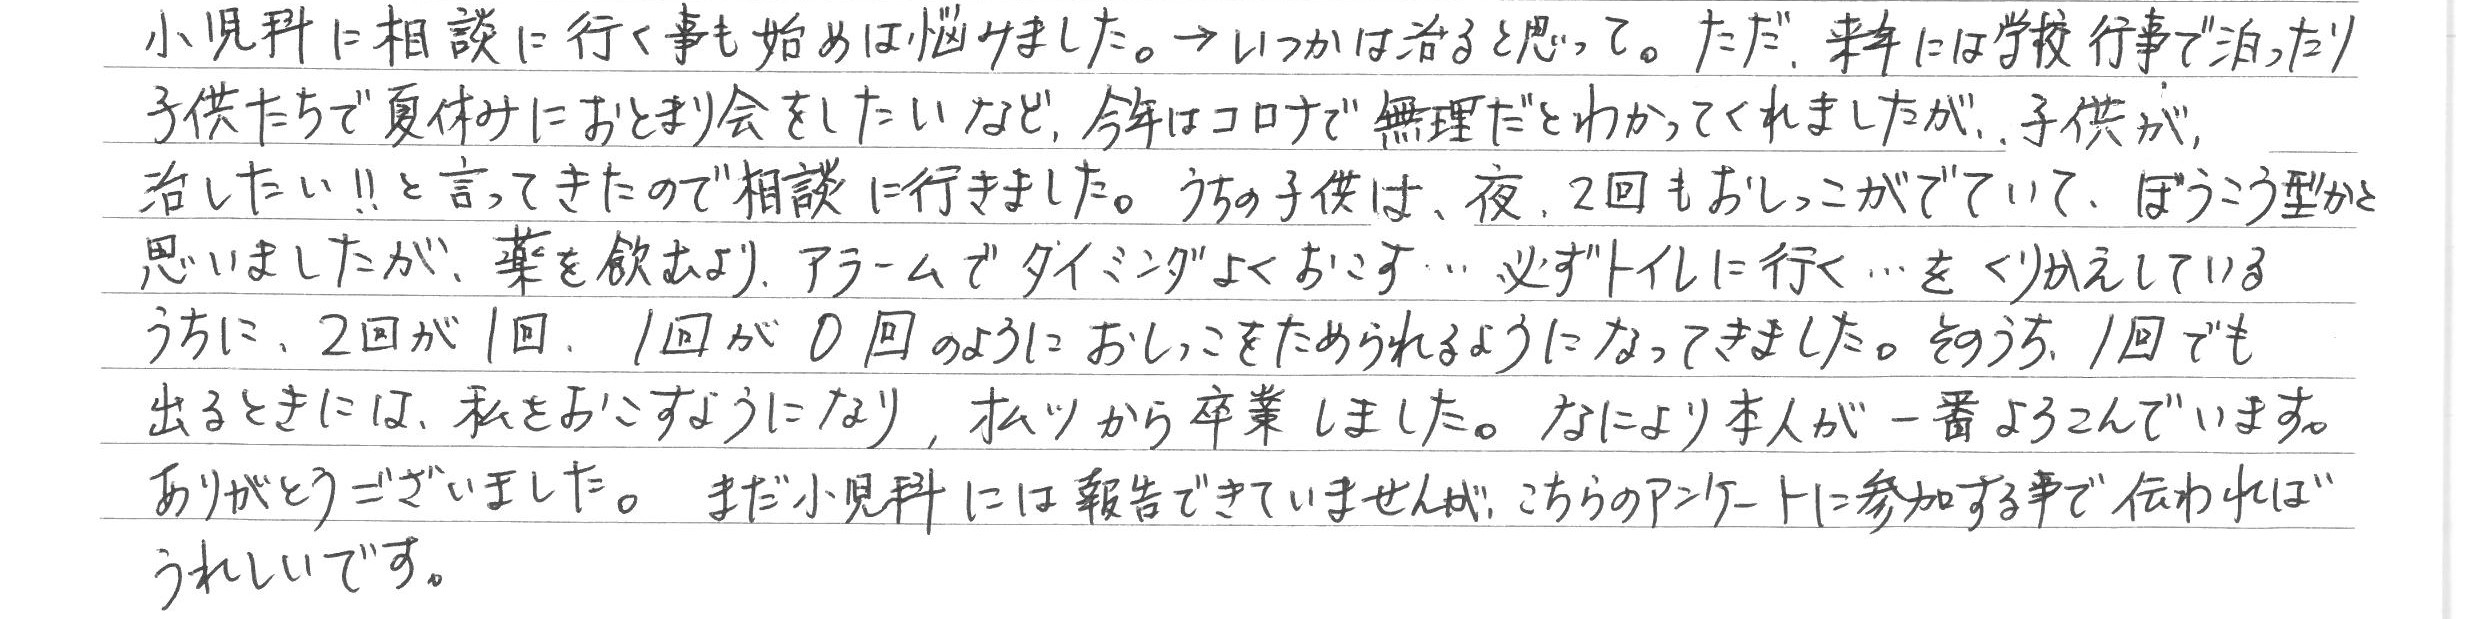 小児科に相談に行く事も始めは悩みました。→いつかは治ると思って。ただ、来年には学校行事で泊ったり
子供たちで夏休みにおとまり会をしたいなど、今年はコロナで無理だとわかってくれましたが、子供が、
治したい!!と言ってきたので相談に行きました。うちの子供は、夜、2回もおしっこがでていて、ぼうこう型かと
思いましたが、薬を飲むより、アラームでタイミングよくおこす…必ずトイレに行く…をくりかえしている
うちに、2回が1回、1回が0回のようにおしっこをためられるようになってきました。そのうち、1回でも
出るときには、私をおこすようになり、オムツから卒業しました。なにより本人が一番よろこんでいます。
ありがとうございました。まだ小児科には報告できていませんが、こちらのアンケートに参加する事で伝われば
うれしいです。